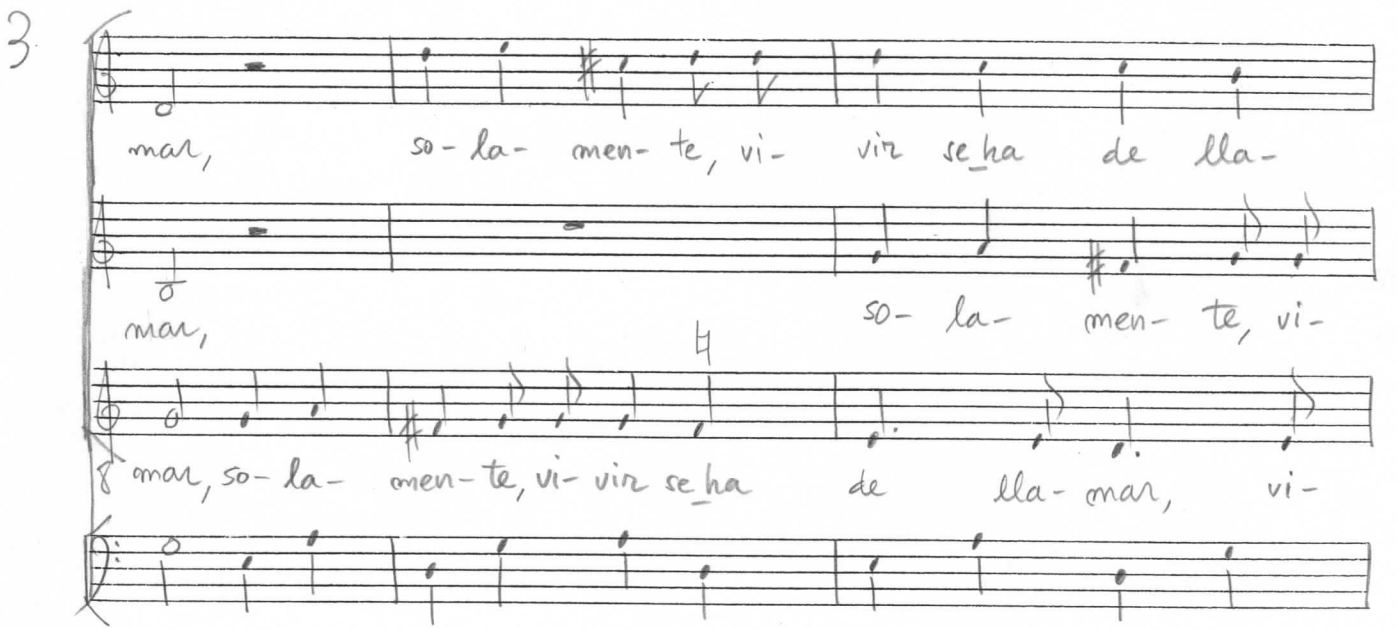 3
mar, so-la- men-te, vi- vir se ha de lla-
mar, so- la- men- te, vi-
8 mar, so-la- men-te, vi- vir se ha de lla- mar, vi-